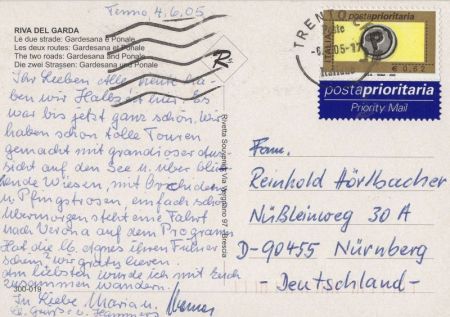 Tenno 4.6.05
RIVA DEL GARDA
Le due strade: Gardesana e Ponale
Les deux routes: Gardesana et Ponale
The two roads: Gardesana and Ponale
Die zwei Strassen: Gardesana und Ponale
Ihr lieben Alle, heute
ben wir Halbzeit Es
war bis jetzt ganz schön. Wir
haben schon tolle Touren
gemacht mit grandioser Aus
sicht auf den See u. über blü
hende Wiesen, mit Orchideen
u. Pfingstrosen, einfach schön
Übermorgen steht eine Fahrt
nach Verona auf dem Programm
Hat die Agnes ihren Führer
schein? wir gratulieren.
Am liebsten würde ich mit Euch
zusammen wandern.
In Liebe Maria u. Werner
300-019
Rivetta Souvenirs
Brescia
TRENTO
posteprioritaria
€ 0,62
postaprioritaria
Priority Mail
Fam.
Reinhold Hörlbacher
Nüßleinweg 30 A
D-90455 Nürnberg
-Deutschland-